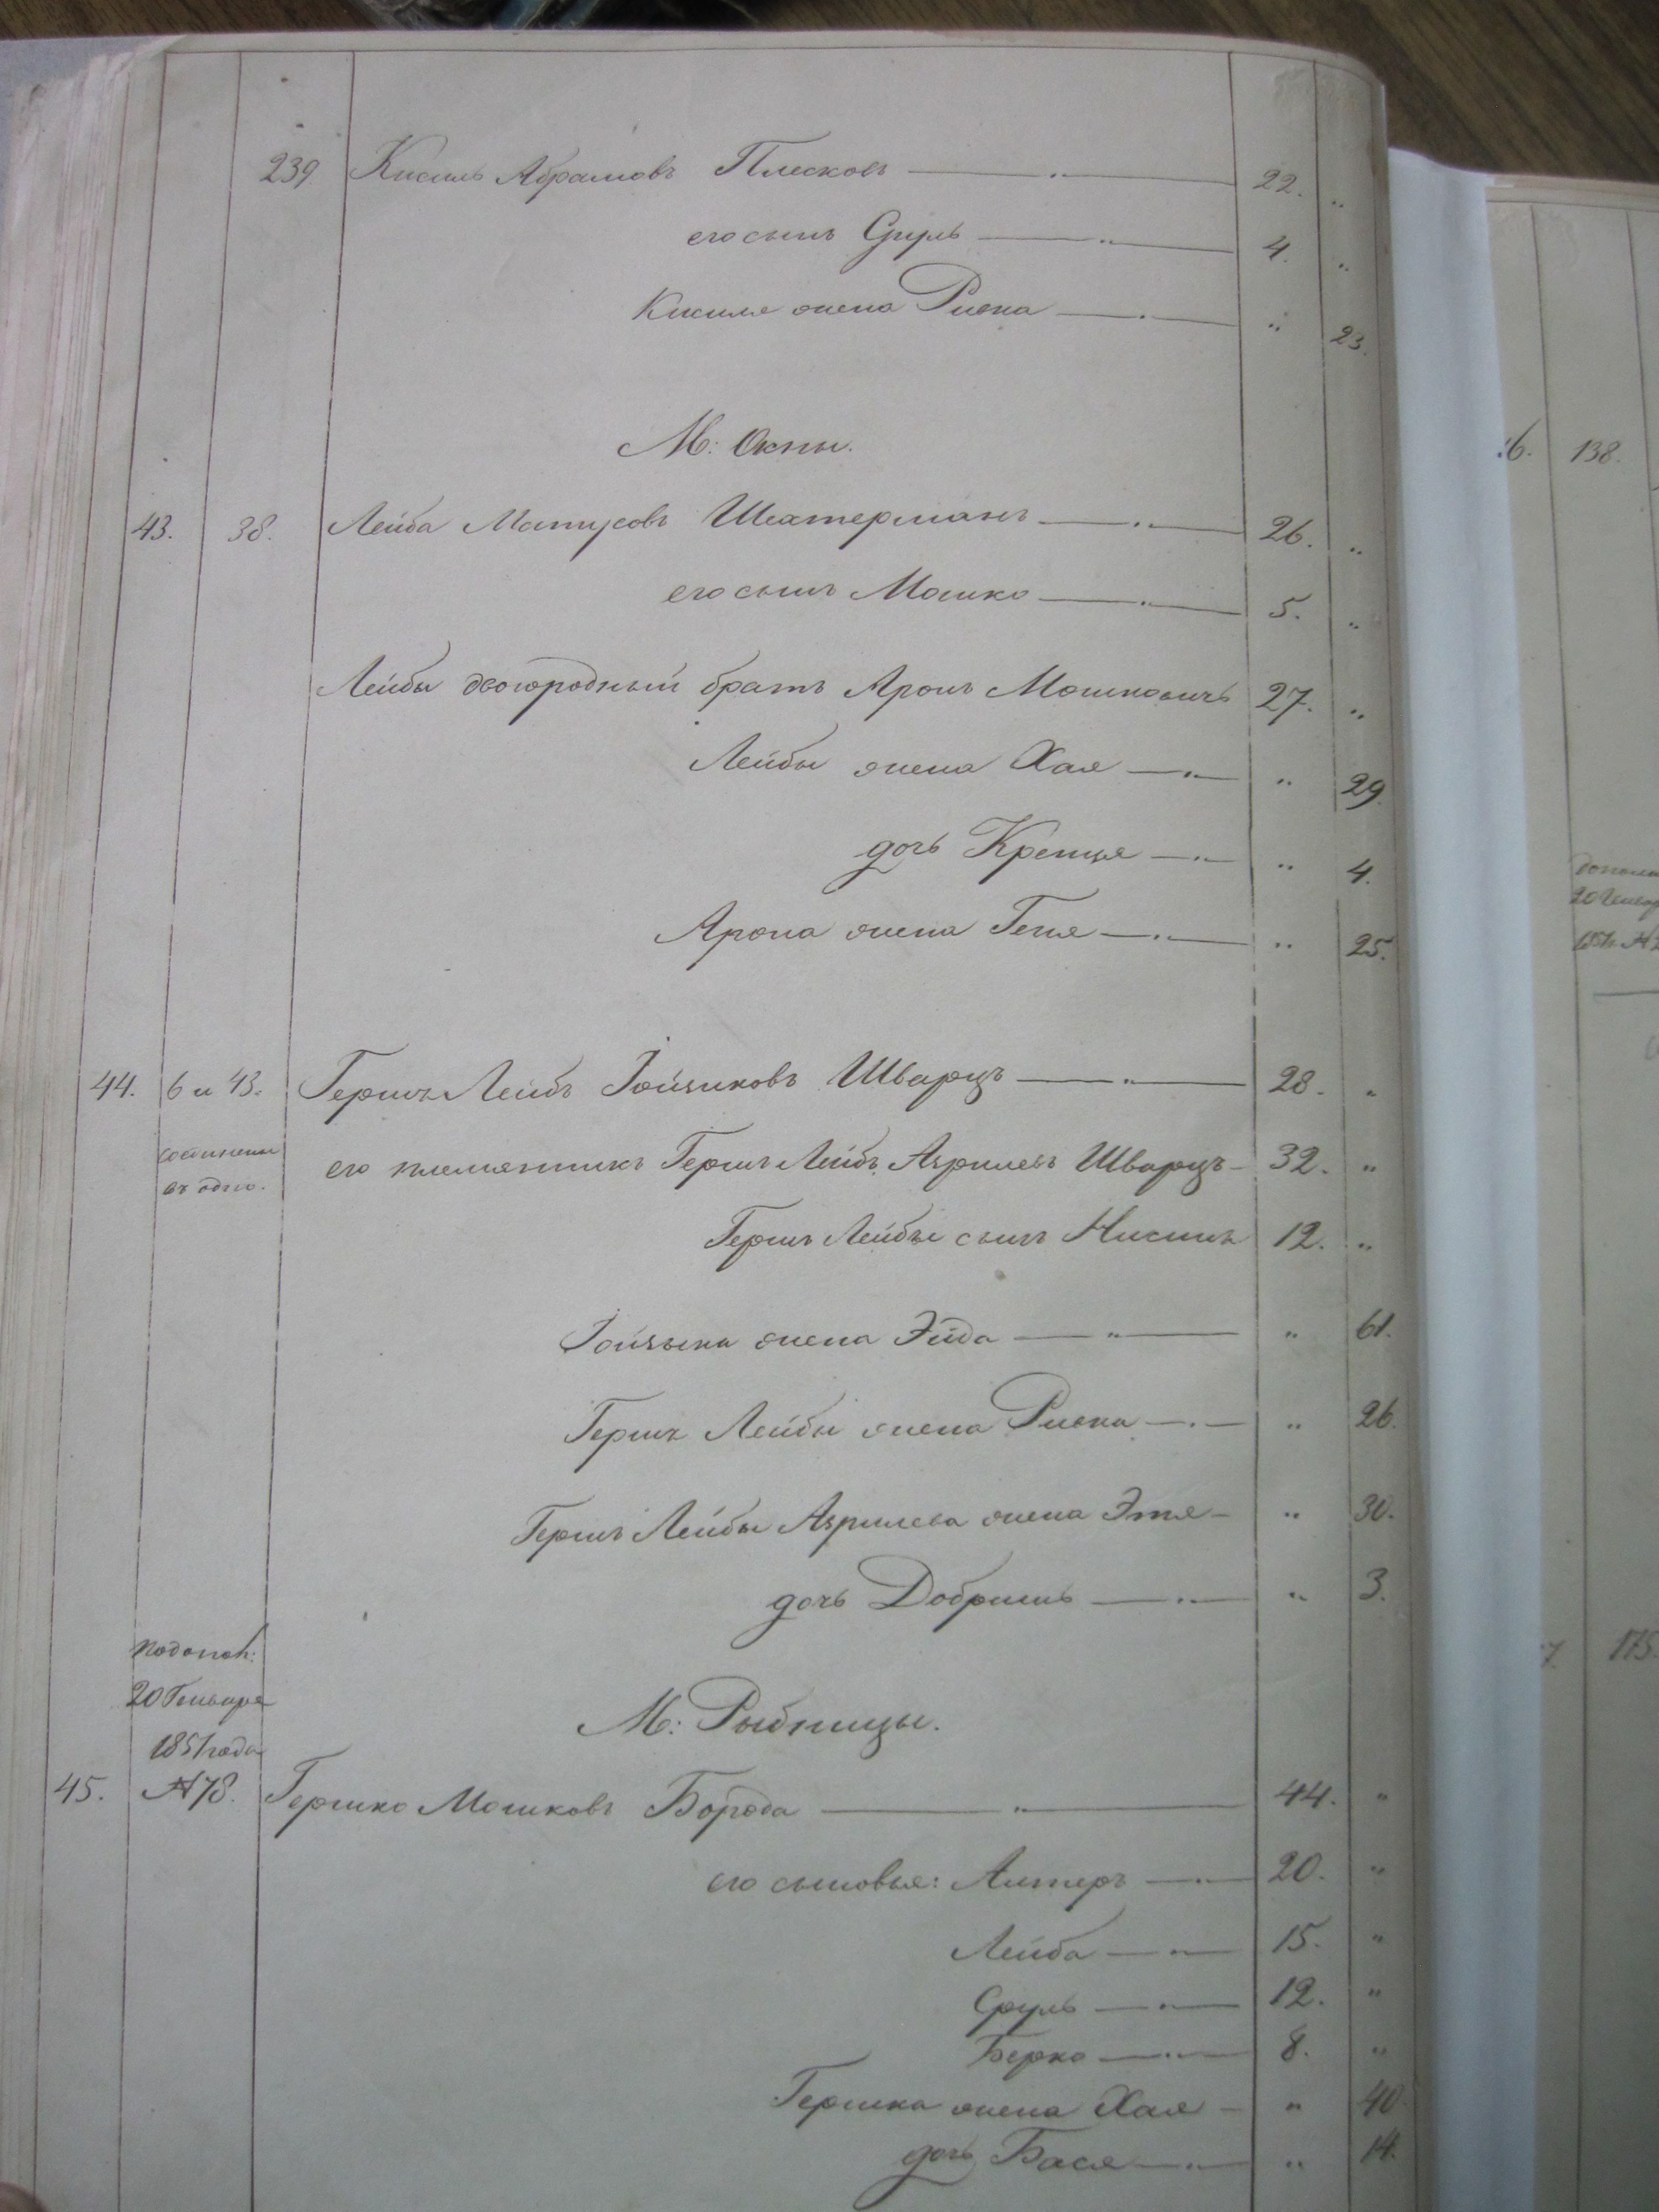 239 Кисиль Абрамовъ Плесковъ 22. "
его сынъ Сруль 4. "
Кисиля жена Ривка " 23.
М: Окны.
43. 38. Лейба Матусовъ Шехтерманъ 26. "
его сынъ Мошко 5. "
Лейбы двоюродный братъ Аронъ Мошковичъ 27. "
Лейбы жена Хая " 29.
дочь Крейця " 4.
Арона жена Геня " 25.
44. 6 и 43. Гершъ Лейбъ Іойзиковъ Шварцъ 28. "
соединены
въ одно.
его племянникъ Гершъ Лейбъ Азрилевъ Шварцъ 32. "
Гершъ Лейбы сынъ Нисинъ 12. "
Іойзыка жена Эйда " 61.
Гершъ Лейбы жена Ривка " 26.
Гершъ Лейбы Азрилева жена Этя " 30.
дочь Добришъ " 3.
подопол:
20 Генваря
1851 года
М: Рыбницы.
45. № 78. Гершко Мошковъ Борода 44. "
его сыновья: Алтеръ 20. "
Лейба 15. "
Сруль 12. "
Берко 8. "
Гершка жена Хая " 40.
дочь Бася " 14.
138.
20 Генвар
175.